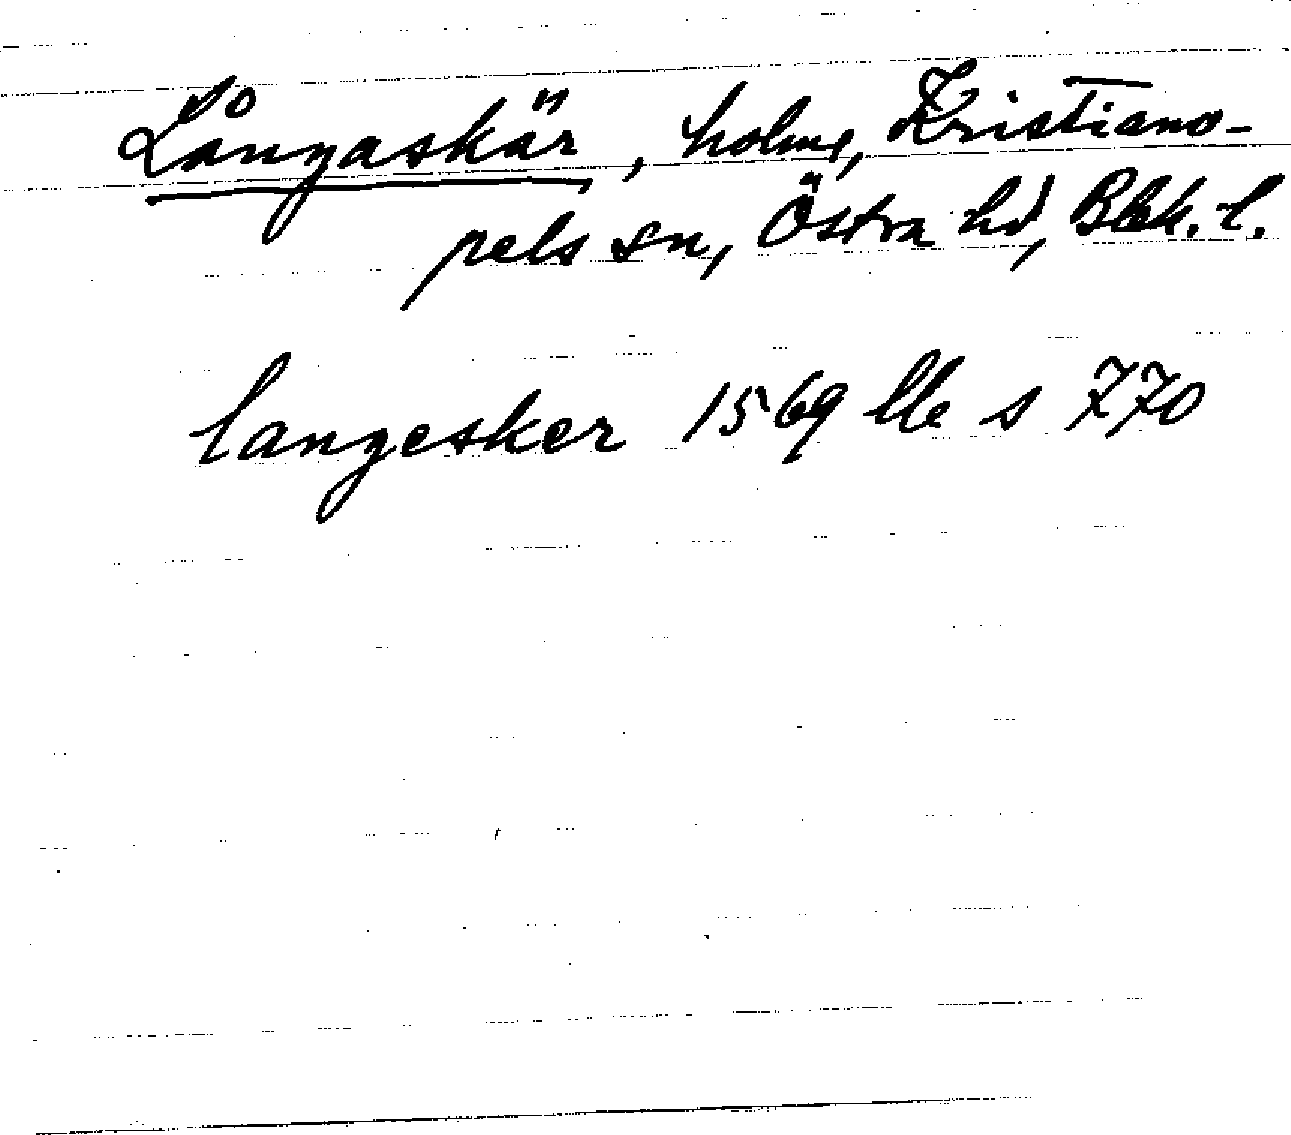 Långaskär, holme, Kristiano-
pels sn, Östra hd, Blek. l.
langesker 1569 lle s 770